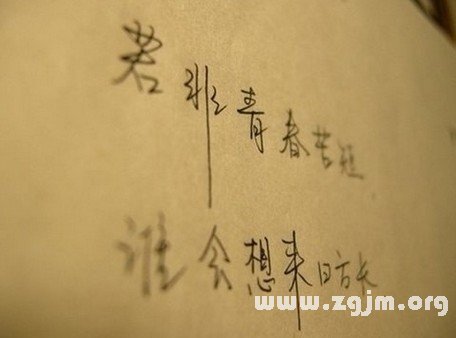 若非青春苦短
谁会想来日方长
www.zgjm.org